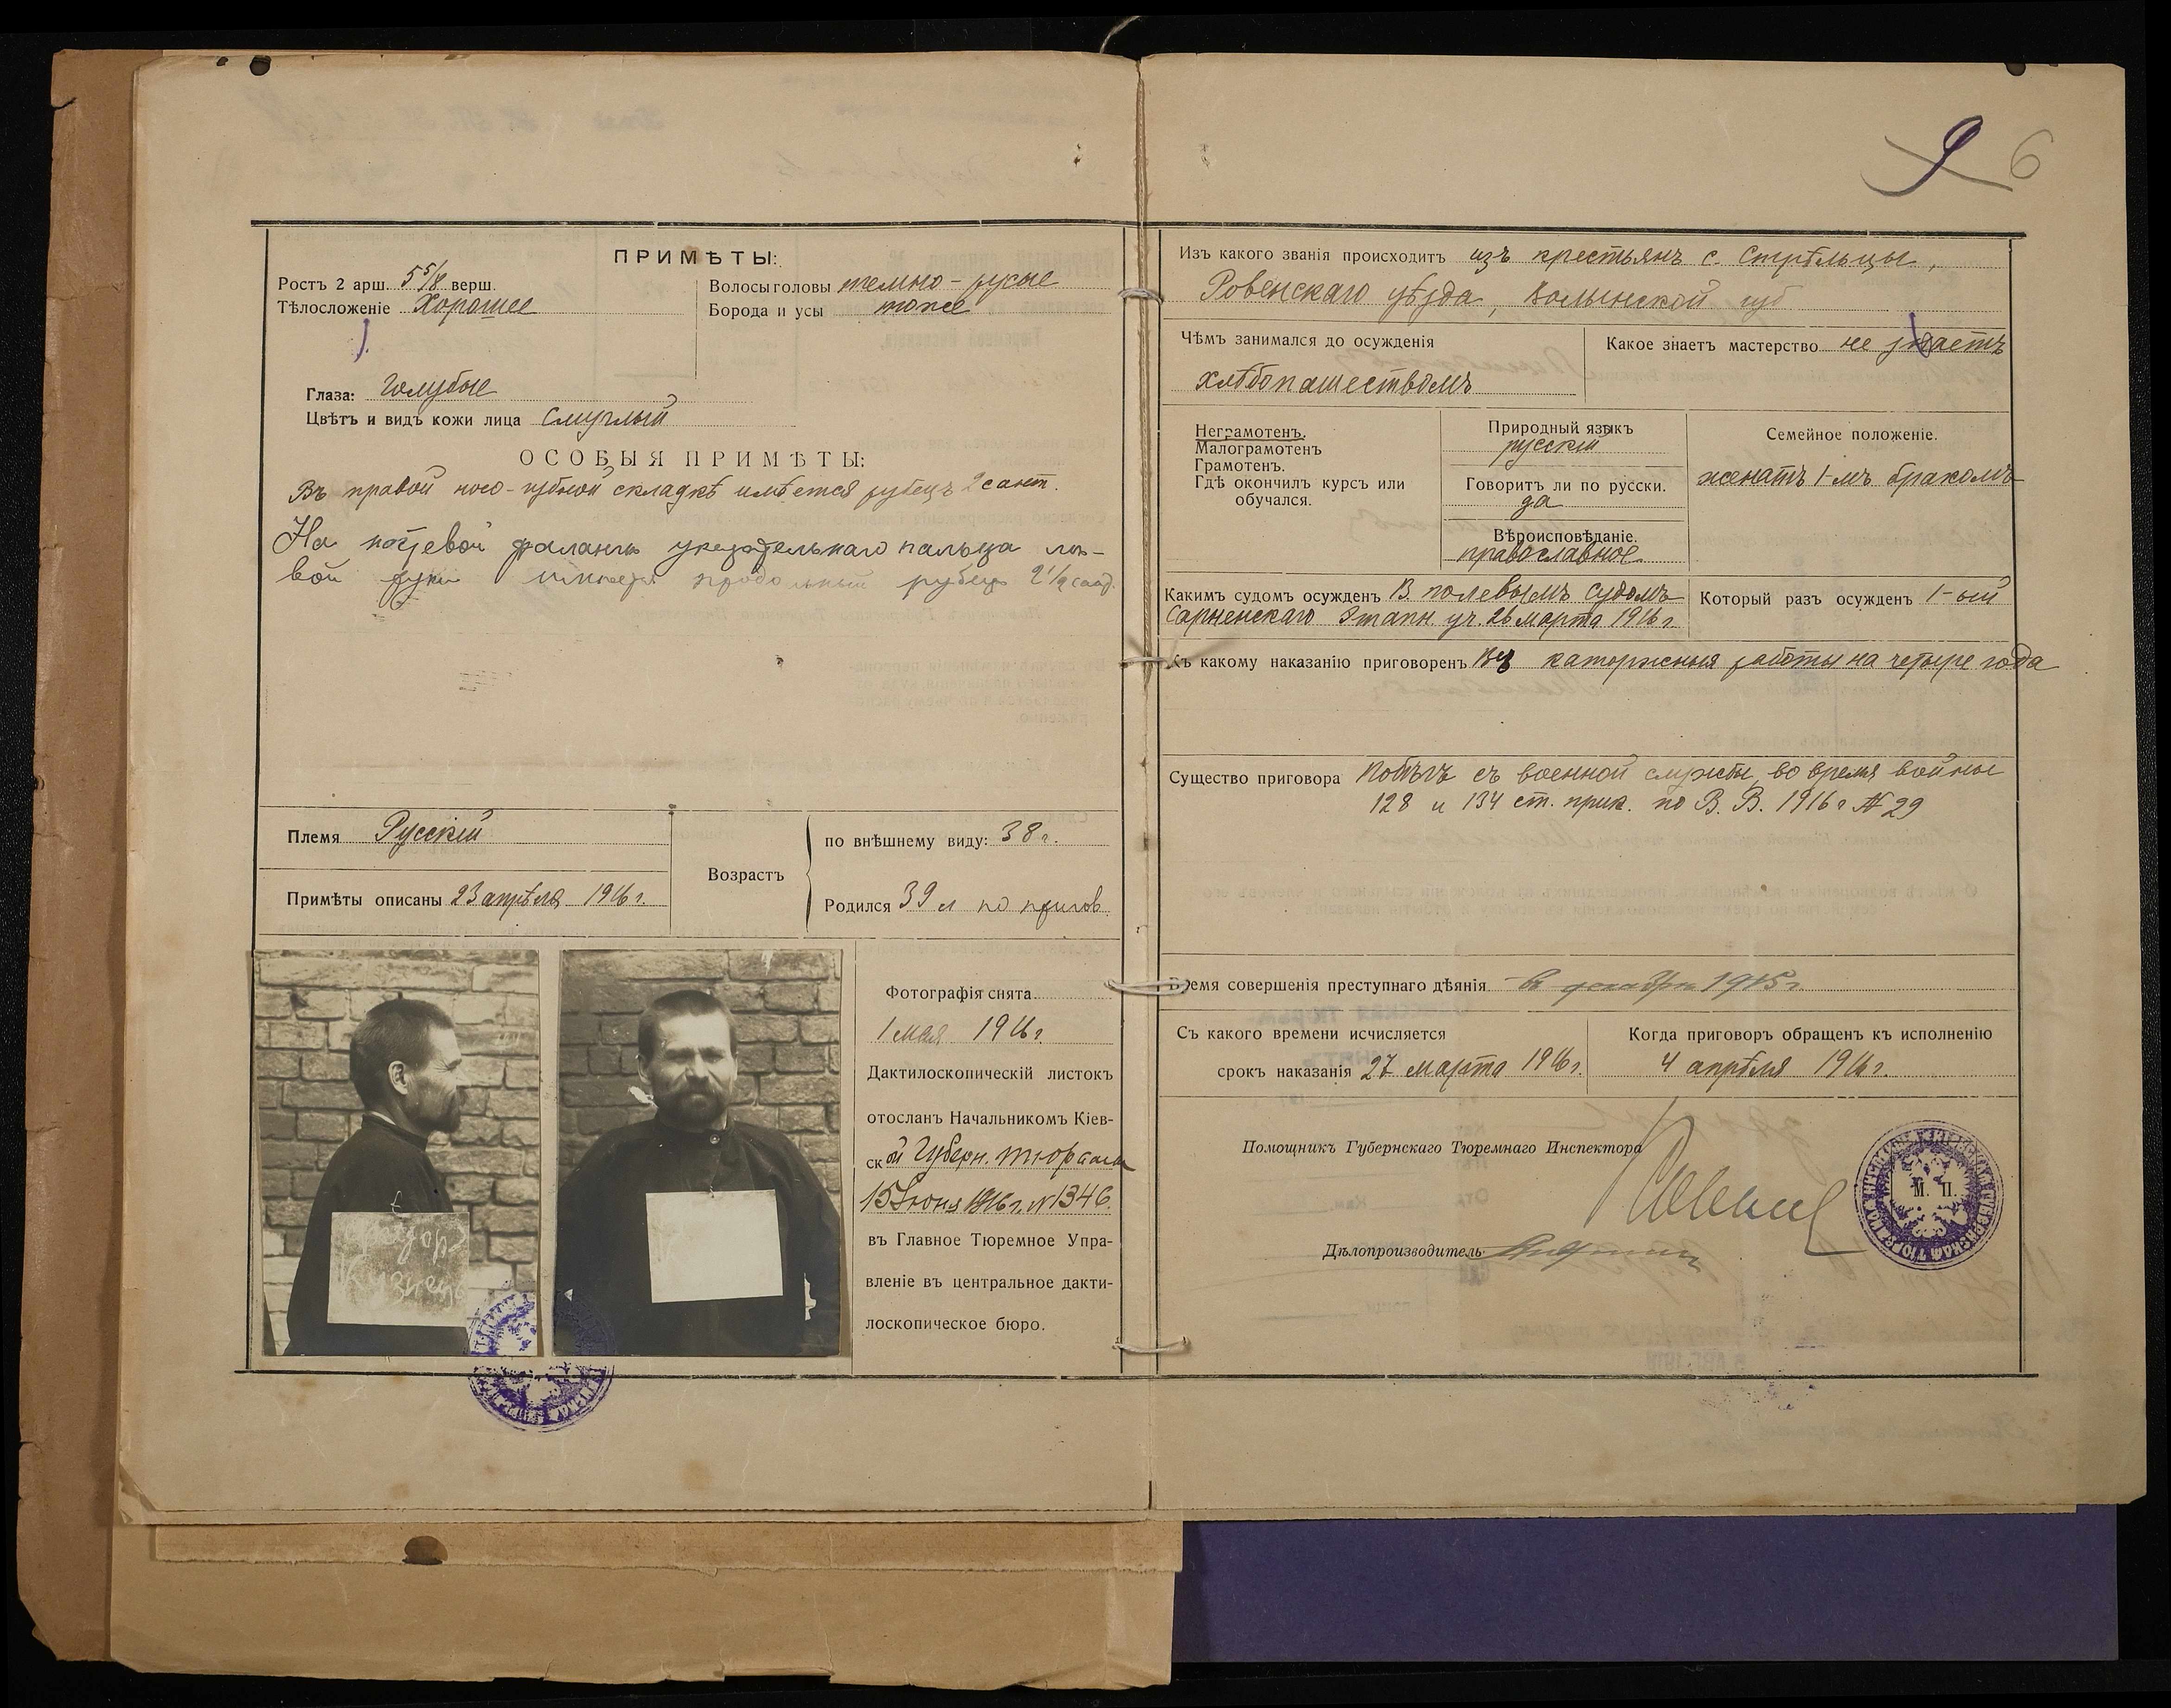 9 6
ПРИМѢТЫ:
Ростъ 2 арш. 5 5/8 верш.
Тѣлосложеніе Хорошее
Волосы головы темно-русые
Борода и усы тоже
Глаза: голубые
Цвѣтъ и видъ кожи лица смуглый
ОСОБЫЯ ПРИМѢТЫ:
Въ правой носо-губной складкѣ имѣется рубецъ 2 сант.
На ногтевой фалангѣ указательнаго пальца лѣ-
вой руки имѣется продольный рубецъ 2 1/2 сант.
Племя Русскій
Примѣты описаны 23 апрѣля 1916 г.
Возрастъ
по внѣшнему виду: 38 г.
Родился 39 л по пригов.
Фотографія снята
1 мая 1916 г.
Дактилоскопическій листокъ
отосланъ Начальникомъ Кіев-
ской Губерн. тюрьмы
15 Іюня 1916 г. № 1346.
въ Главное Тюремное Упра-
вленіе въ центральное дакти-
лоскопическое бюро.
Изъ какого званія происходитъ изъ крестьянъ с. Стрѣльцы,
Ровенскаго уѣзда, Волынской губ
Чѣмъ занимался до осужденія
хлѣбопашествомъ
Какое знаетъ мастерство не знаетъ
Неграмотенъ.
Малограмотенъ
Грамотенъ.
Гдѣ окончилъ курсъ или
обучался.
Природный языкъ
русскій
Говоритъ ли по русски.
да
Вѣроисповѣданіе.
православное
Семейное положеніе.
женатъ 1-мъ бракомъ
Какимъ судомъ осужденъ В. полевымъ судомъ
Сарненскаго Этапн. уч. 26 марта 1916 г.
Который разъ осужденъ 1-ый
Къ какому наказанію приговоренъ Въ каторжныя работы на четыре года
Существо приговора Побѣгъ съ военной службы, во время войны
128 и 134 ст. прик. по В. В. 1916 г № 29
Время совершенія преступнаго дѣянія въ декабрѣ 1915 г.
Съ какого времени исчисляется
срокъ наказанія 27 марта 1916 г.
Когда приговоръ обращенъ къ исполненію
4 апрѣля 1916 г.
Помощникъ Губернскаго Тюремнаго Инспектора
М. П.
Дѣлопроизводитель